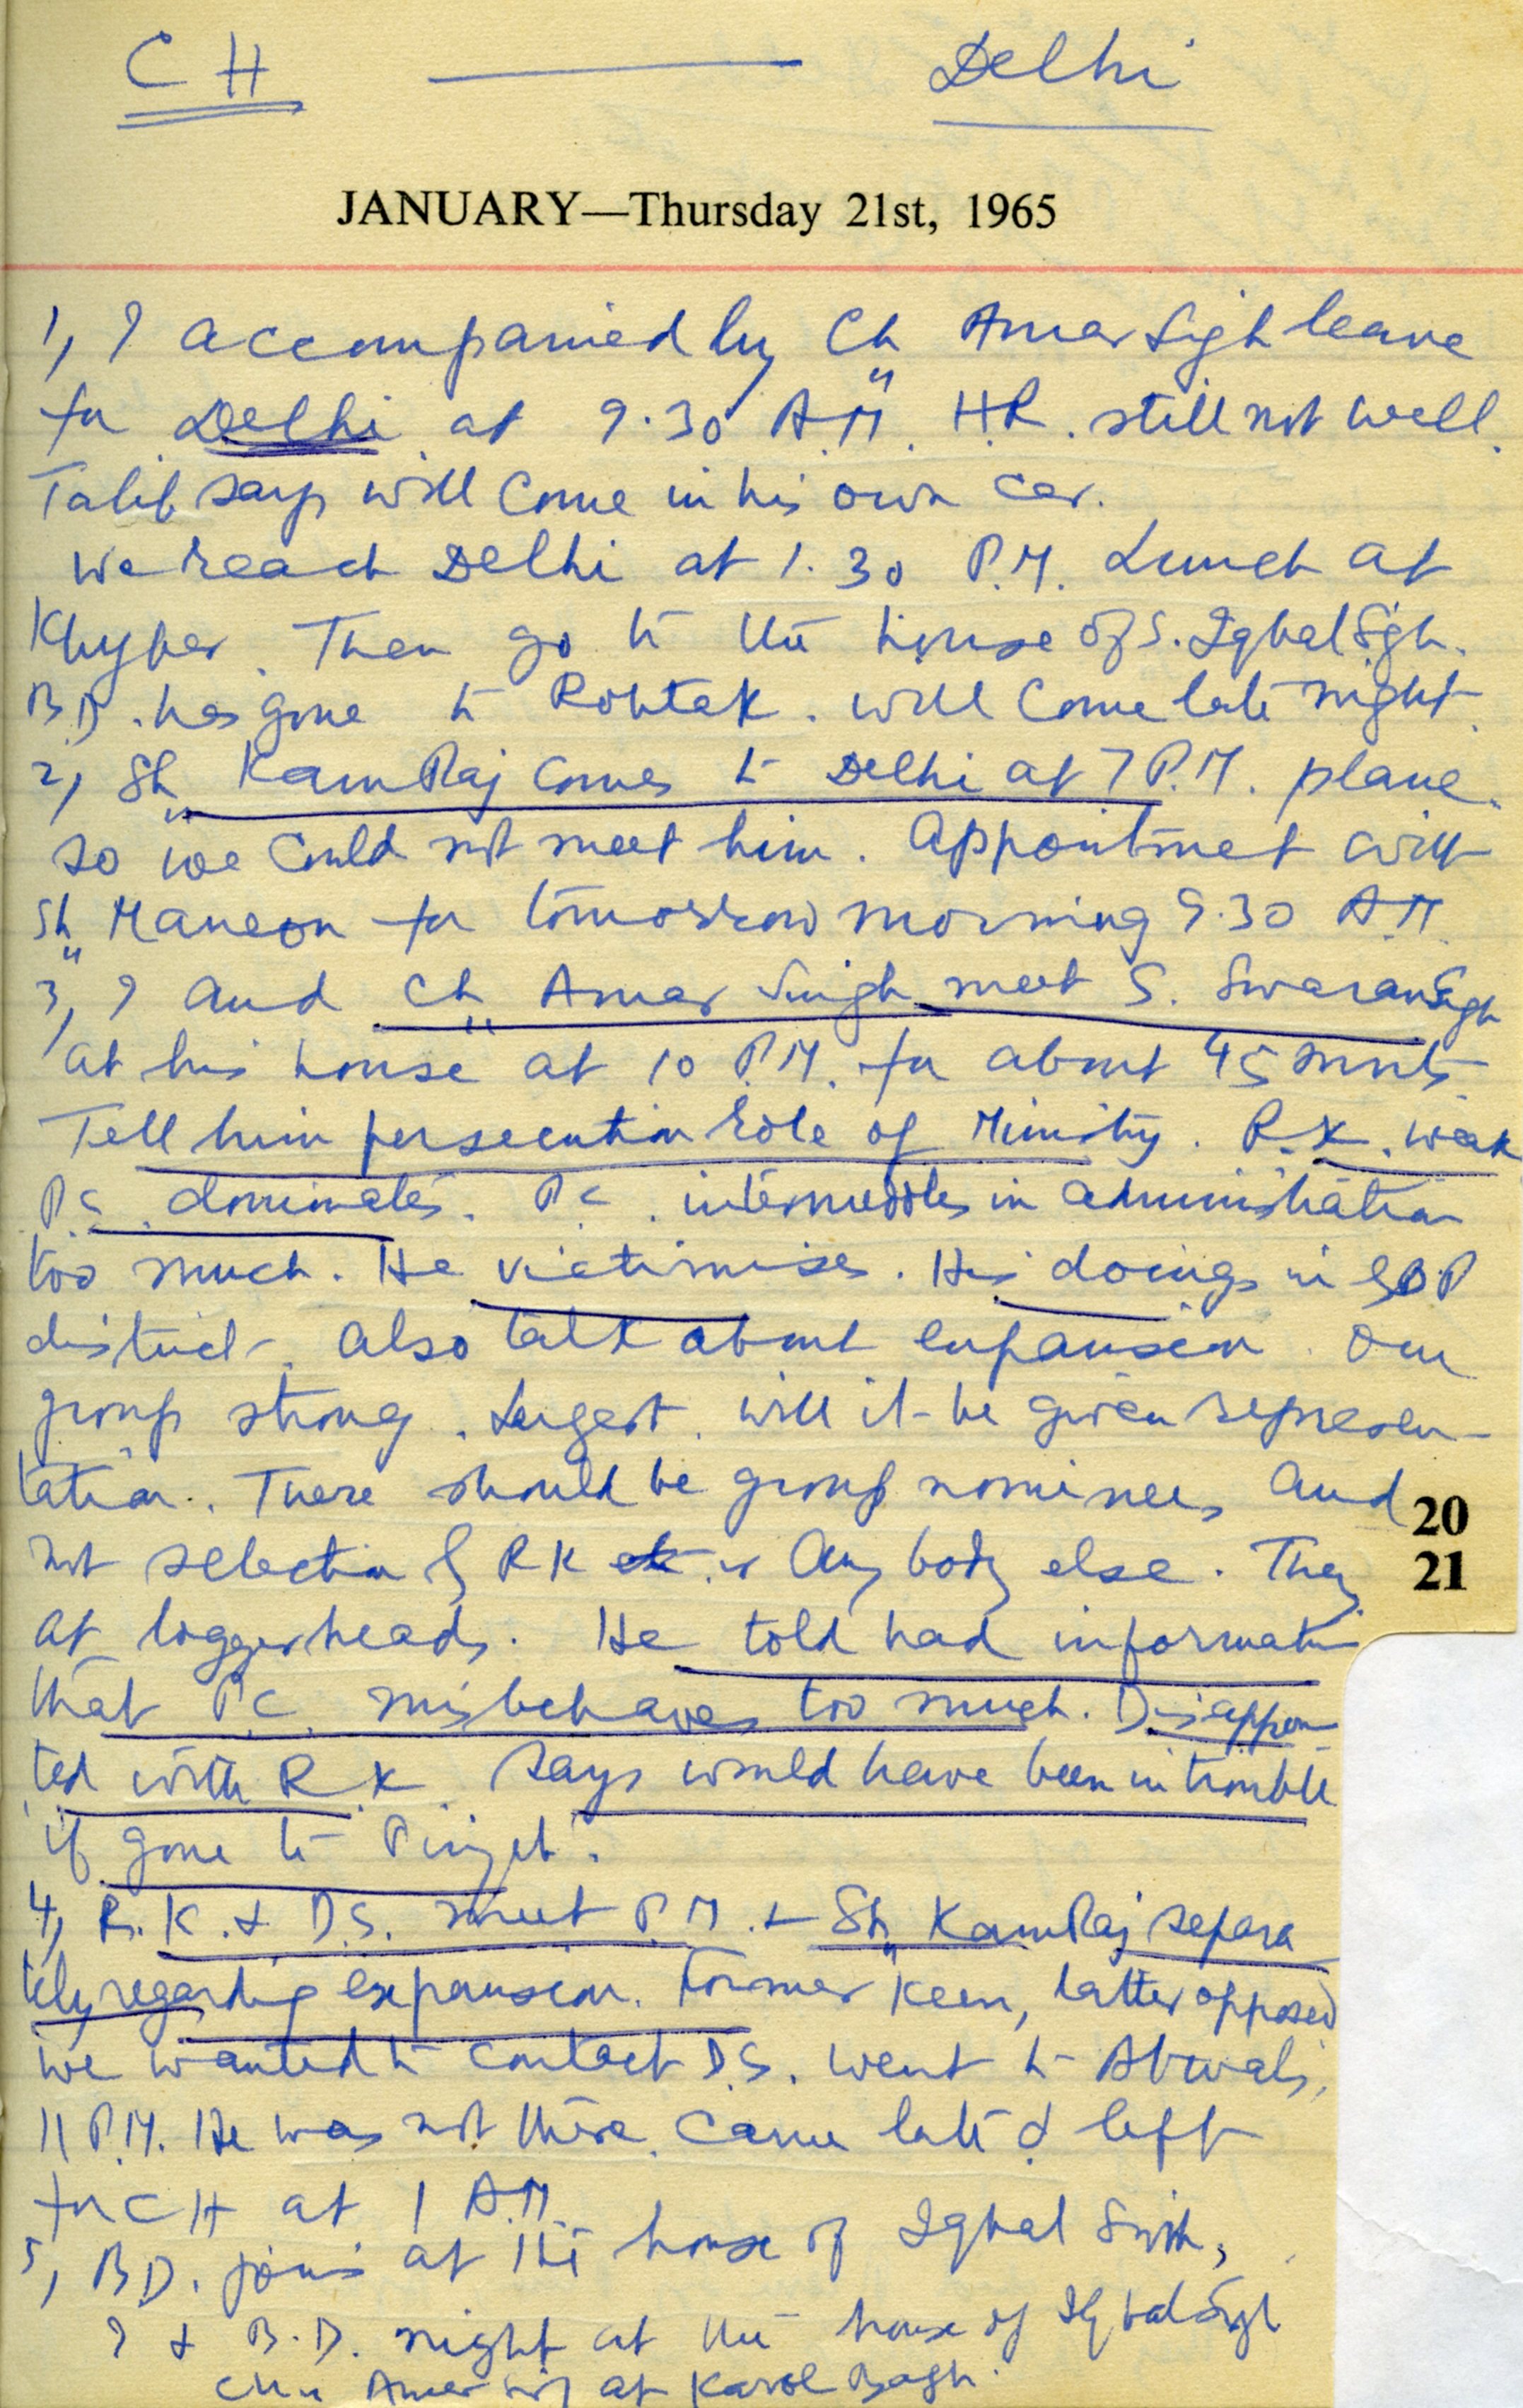 CH — Delhi
JANUARY—Thursday 21st, 1965
1, I accompanied by Ch Amar Sigh leave
for Delhi at 9.30 A.M. H.R. still not well.
Talib says will come in his own car.
We reach Delhi at 1.30 P.M. Lunch at
Khyber. Then go to the house of S. Iqbal Sgh.
B.D. has gone to Rohtak. will come late night.
2, Sh KamRaj comes to Delhi at 7 P.M. plane.
so we could not meet him. Appointmet with
Sh for tomorrow morning 9.30 A.M.
3, I and Ch Amar Singh meet S. Swaran Sgh
at his house at 10 P.M. for about 45 mnts.
Tell him persecution role of Ministry. R.K. weak
P.C. dominates. P.C. intermeddles in administration
too much. He victimises. His doings in
district. Also talk about expansion. Our
group strong. Largest. will it be given represen-
tation. There should be group nominees and
not selection of R K or any body else. They
at loggerheads. He told had information
that P.C. misbehaves too much. Disappoin-
ted with R.K. Says would have been in trouble
if gone to
4, R.K. & D.S. meet P.M. & Sh KamRaj separa
tely regarding expansion. Former keen, latter opposed
we wanted to contact D.S. went to
11 P.M. He was not there. Came late & left
for CH at 1 A.M.
5, B.D. joins at the house of Iqbal Singh,
I & B.D. night at the house of Iqbal Sigh
Amar at Karol Bagh.
20
21